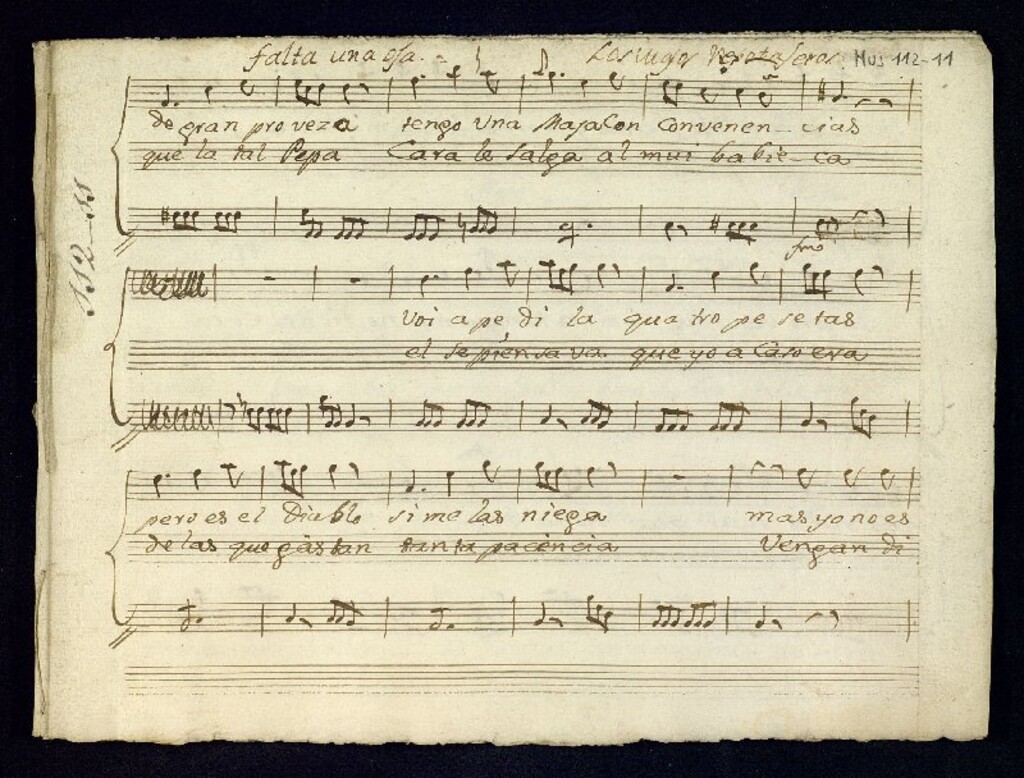 falta una oja. Los Mus 112-11
de gran proveza tengo una Maja Con Convenen-cias
que la tal Pepa Cara le salga al mui babie-ca
112-11
fmo
Voi a pe di la qua tro pe se tas
el se piensa va que yo a Caso era
pero es el Diablo si me las niega mas yo no es
de las que gastan tanta paciencia Vengan di